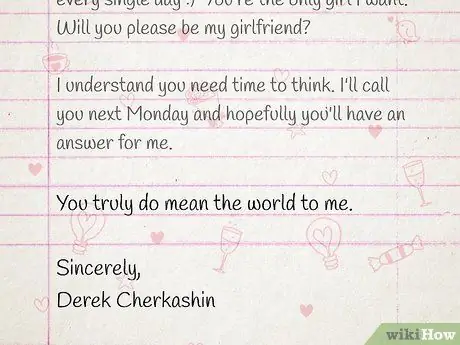 every single day :) You're the only girl I want.
Will you please be my girlfriend?
I understand you need time to think. I'll call
you next Monday and hopefully you'll have an
answer for me.
You truly do mean the world to me.
Sincerely,
Derek Cherkashin
wikiHow